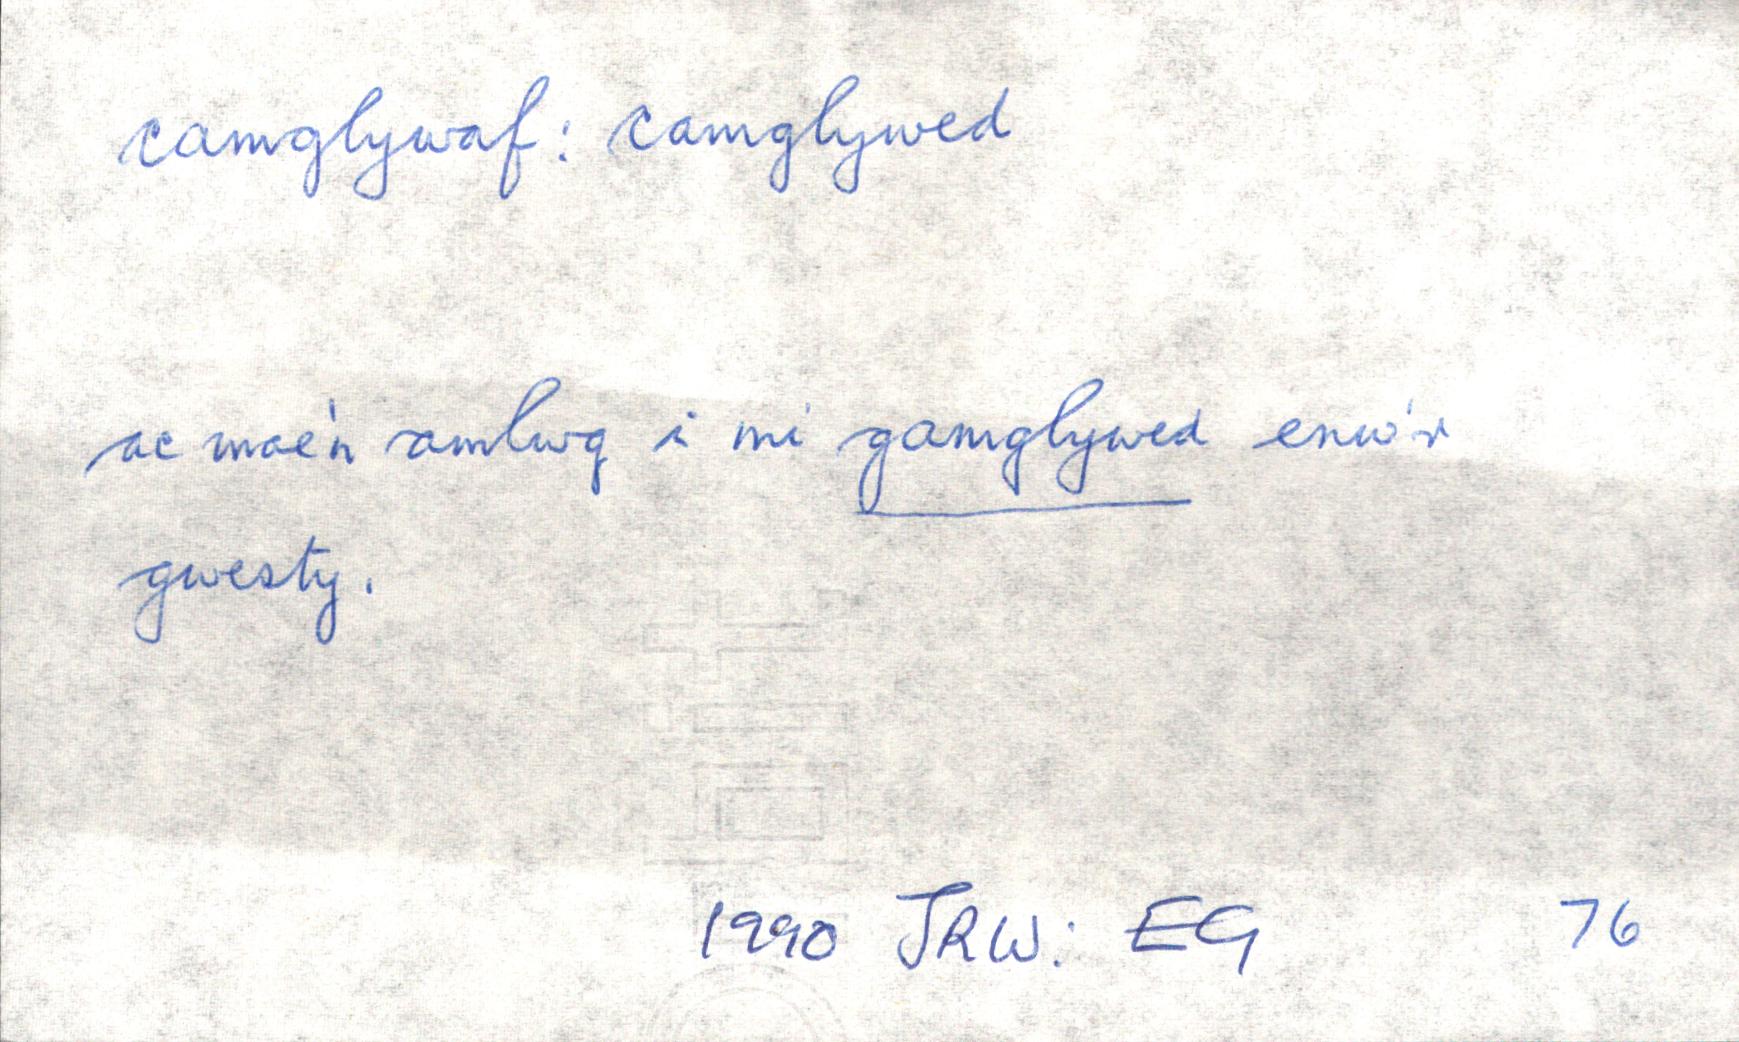 camglywaf: camglywed
ac mae'n amlwg i mi gamglywed enw'r
gwesty.
1990 JRW: EG 76